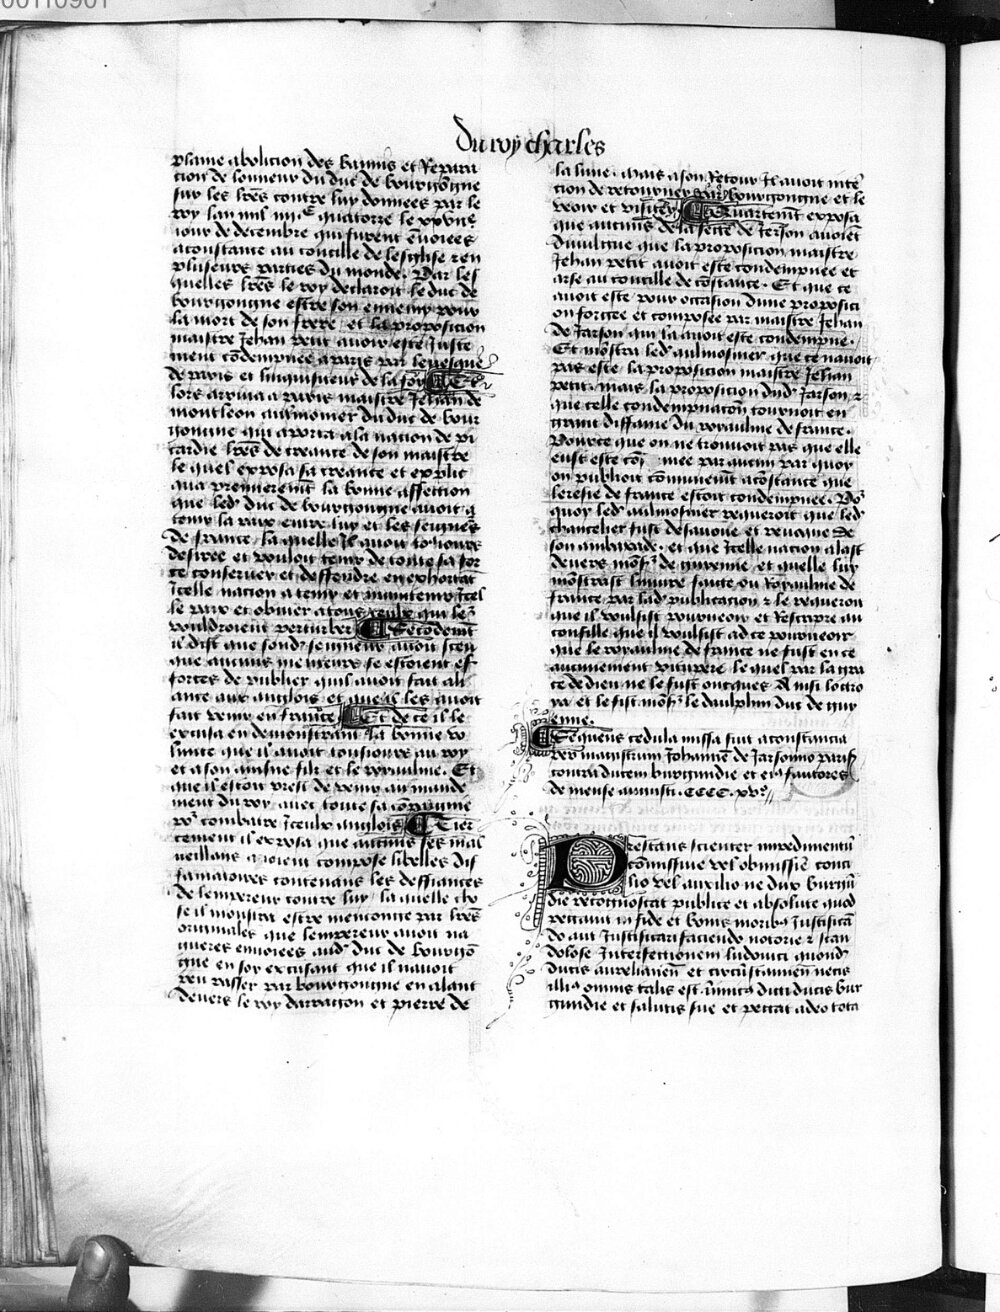 00110901
Du roy charles
plaine abolicion des bannis et Repara
cion de lonneur du duc de bourgongne
sur les lres contre luy donnees par le
roy lan mil iiii.c quatorze le
iour de decembre qui furent enuoiees
a constance au concille de leglise z en
pluseurs parties du monde. Par les
quelles lres le roy declaroit le duc de
bourgongne estre son ennemy pour
la mort de son frere / et la proposicion
maistre Jehan petit auoir este Juste
ment condempnee a paris par leuesque
de paris et linquisiteur de la foy
lors arriua a paris maistre Jehan de
montleon aumosnier du duc de bour
gongne qui aporta a la nacion de pi
cardie lres de creance de son maistre
le quel exposa sa creance et expli
qua premierement la bonne affection
que led' duc de bourgongne auoit a
tenir la paix entre luy et les seigneurs
de france / la quelle Il auoit tousiours
desiree et vouloit tenir de toute sa for
ce conseruer et deffendre en exhortant
Jcelle nacion a tenir et maintenir Jcel
le paix et obuier a tous ceulx qui le
vouldroient perturber Secondement
il dist que sond' seigneur auoit sceu
que aucuns menteurs se estoient ef
forces de publier quil auoit fait ali
ance aux anglois et que il les auoit
fait venir en france Et de ce il le
excusa en demonstrant la bonne vo
lunte que il auoit tousiours au roy
et a son ainsne filz et le royaulme. Et
que il estoit prest de venir au mande
ment du roy auec toute sa compaignie
pour combatre Jceulx anglois Tier
cement il exposa que aucuns ses mal
ueillans auoient compose libelles dif
famatoires contenans les deffiances
de lempereur contre luy / la quelle cho
se il monstra estre menconge par lres
originales que lempereur auoit na
gueres enuoiees aud' duc de bourgon
gne en soy excusant que il nauoit
peu passer par bourgongne en alant
deuers le roy darragon et pierre de
la lune. mais a son Retour Il auoit inten
cion de retourner par bourgongne et le
veoir et visiter Quartement exposa
que aucuns de la secte de Jerson auoient
diuulgue que la proposicion maistre
Jehan petit auoit este condempnee et
arse au concille de constance. Et que ce
auoit este pour occasion dune proposici
on forgee et composee par maistre Jehan
de Jarson qui la auoit este condempnee.
Et monstra led' aulmosnier que ce nauoit
pas este la proposicion maistre Jehan
petit. mais la proposicion dud' Jarson, z
que celle condempnacion tournoit en
grant diffame du royaulme de france.
Pource que on ne trouuoit pas que elle
eust este par aucun par quoy
on publioit communement a constance que
leresie de france estoit condempnee. Pour
quoy led' aulmosnier requeroit que led'
chancelier fust desauoue et reuoque de
son ambaxade. et que Jcelle nacion alast
deuers mons.r de guienne / et quelle luy
monstrast liniure faicte ou Royaulme de
france par lad' publicacion z le requerant
que il voulsist pourueoir et Rescripre au
concille que il voulsist ad ce pourueoir
que le royaulme de france ne fust en ce
aucunement vitupere le quel par la gra
ce de dieu ne le fust oncques Ainsi lottro
ya et le fist mons.r le daulphin duc de guy
enne.
Sequens cedula missa fuit a constancia
per magistrum Johannem de Jarsonno parisius
contra ducem burgundie et eius fautores
de mense augusti. CCCC. xv.o
Prestans scienter impedimentum
commissiue vel obmissiue conci
lio vel auxilio ne dux burgun
die recognoscat publice et absolute quod
peccauit in fide et bonis moribus Justifican
do aut Justificari faciendo notorie z scan
dolose Interfectionem ludouici quondam
ducis aurelianensis et circumstanciam necis
illius omnis talis est inimicus dicti ducis bur
gundie et salutis sue et peccat adeo tota